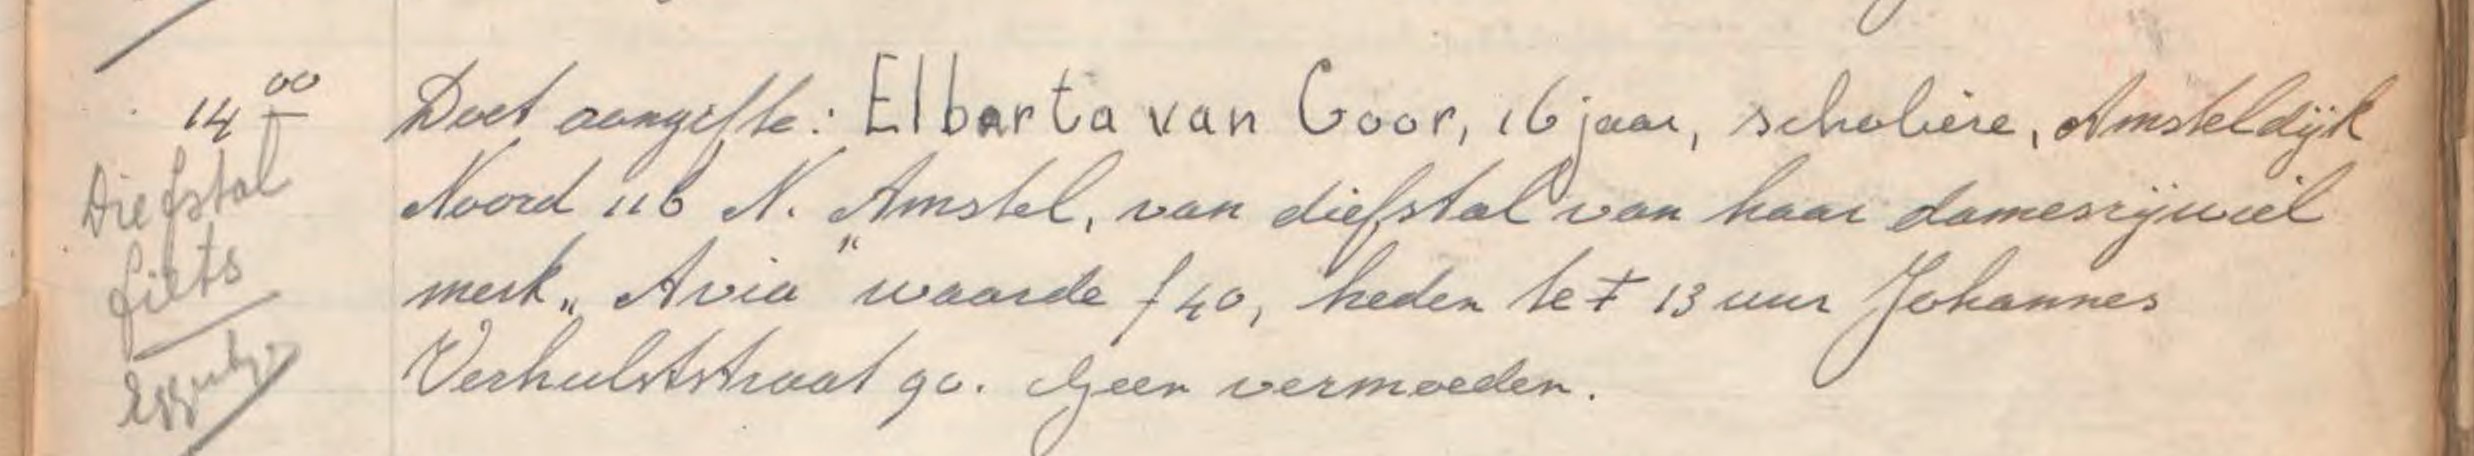 14 00 Doet aangifte: Elbarta van Goor, 16 jaar, scholiere, Amsteldijk
Diefstal Noord 116 N. Amstel, van diefstal van haar damesrijwiel
fiets merk „Avia" waarde f 40, heden te ± 13 uur Johannes
Verhulststraat 90. Geen vermoeden.